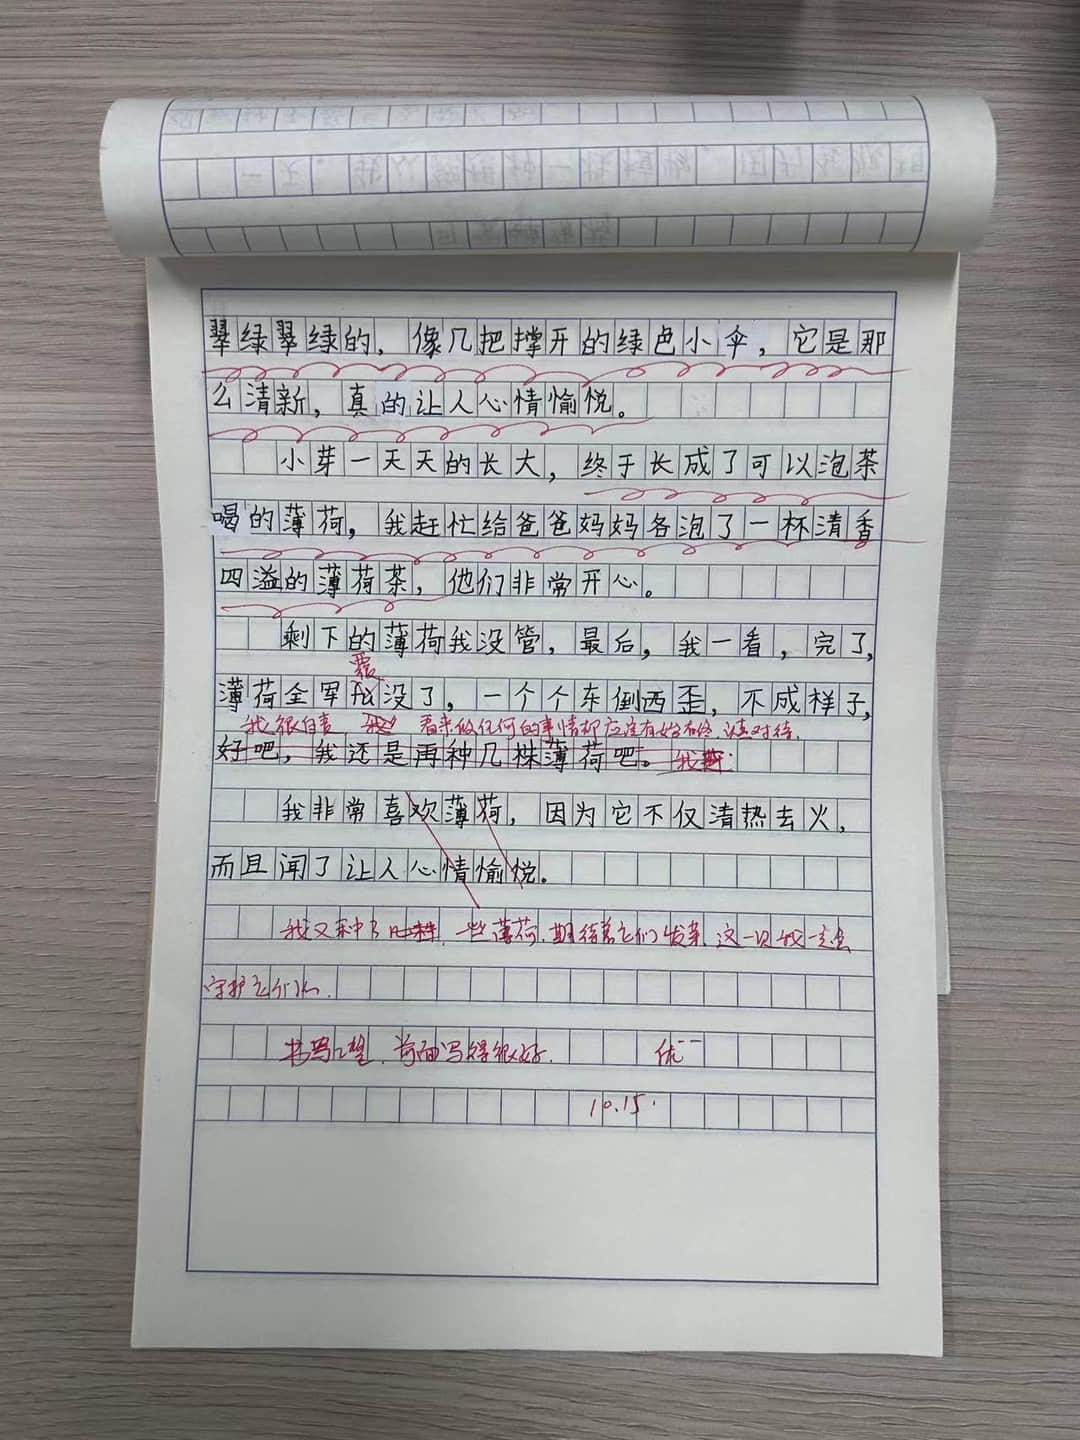 翠绿翠绿的，像几把撑开的绿色小伞，它是那
么清新，真的让人心情愉悦。
小芽一天天的长大，终于长成了可以泡茶
喝的薄荷，我赶忙给爸爸妈妈各泡了一杯清香
四溢的薄荷茶，他们非常开心。
剩下的薄荷我没管，最后，我一看，完了，
覆
薄荷全军没了，一个个东倒西歪，不成样子，
我很自责 看来做任何的事情都应该有始有终，认真对待.
好吧，我还是再种几株薄荷吧。我
我非常喜欢薄荷，因为它不仅清热去火，
而且闻了让人心情愉悦。
我又种了一些薄荷，期待着它们发芽，这一次我一定会
守护它们.
书写工整，前面写得很好. 优--
10.15.